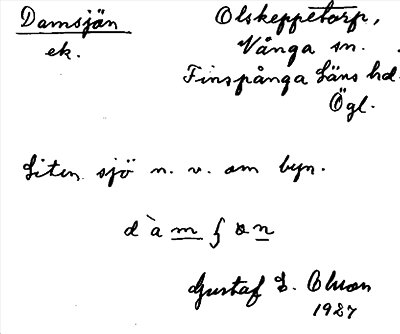 Damsjön
ek.
Olskeppetorp,
Vånga sn.
Finspånga Läns hd.
Ögl.
Liten sjö n. v. om byn.
Gustaf E.
1927